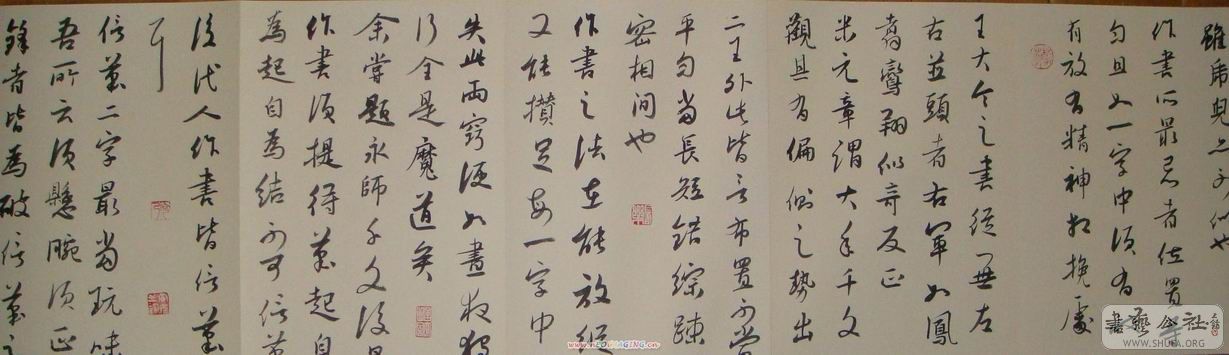 雖虎兒亦不似也
作書所最忌者位置
勻且如一字中須有
有放有精神相挽處
王大令之書從無左
右並頭者右軍如鳳
翥鸞翔似奇反正
米元章謂大年千文
觀其有偏側之勢出
二王外此皆言布置不當
平勻當長短錯綜疎
密相間也
作書之法在能放縱
又能攢捉每一字中
失此兩竅便如晝夜獨
行全是魔道矣
余嘗題永師千文後曰
作書須提得筆起自
為起自為結不可信筆
後代人作書皆信筆
耳
信筆二字最當玩味
吾所云須懸腕須正
鋒者皆為破信筆之
書藝公社
WWW.SHUFA.ORG